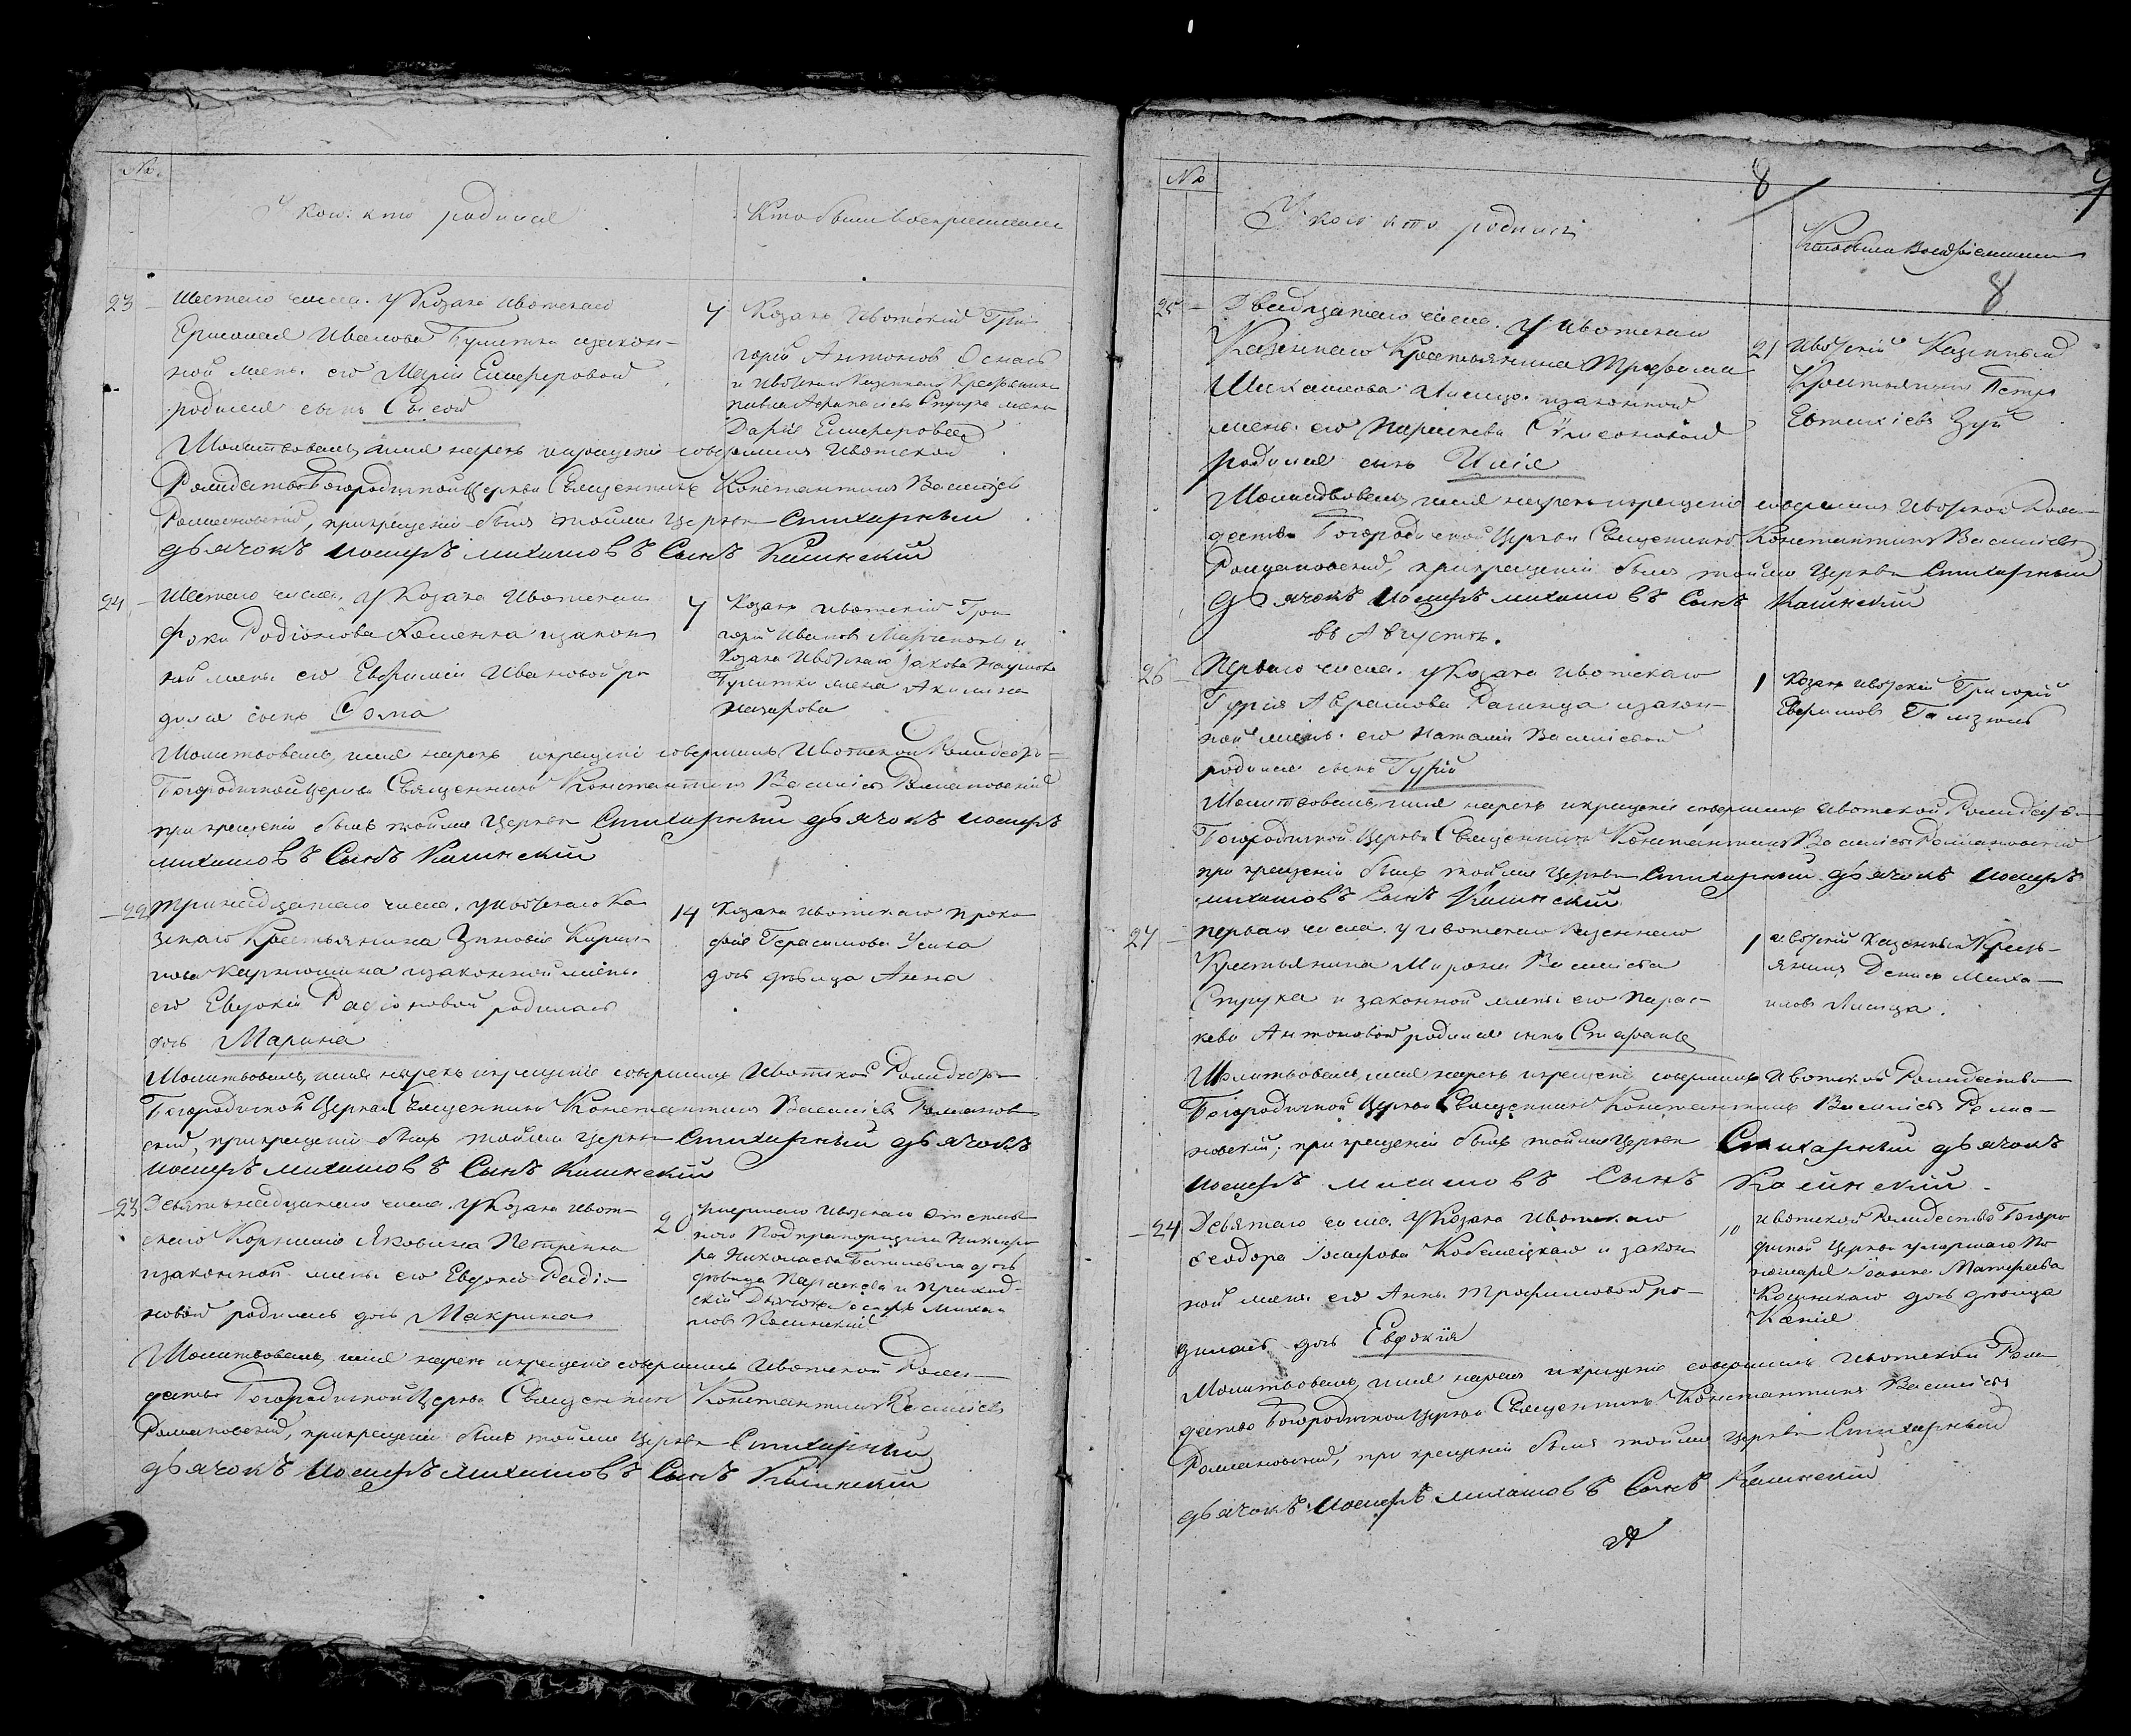 №
У кого кто родился
Кто были восприемники
23
Шестаго числа. У Козака Ивотскаго
Ермолая Иванова и закон-
ной жены его Маріи Елисеровой
родился сынъ Сысой
7
Козакъ Ивотскій Гри-
горій Антоновъ
и Ивотскаго Казеннаго Крестьянина
жена
Дарія
Молитвовалъ, имя нарекъ и крещеніе совершилъ Ивотской
Рождество Богородичной Церкви Священникъ Константинъ Василіевъ
Романовскій, при крещеніи былъ тойже Церкви Стихарный
дьячокъ Иосифъ михаиловъ Сынъ Калинскій
24
Шестаго числа. У Козака Ивотскаго
Фоки Родіонова Хоменка и закон-
ной жены его Евфиміи Ивановой ро-
дился сынъ Сома
7
Козакъ Ивотскій Гри-
горій Ивановъ и
Козака Ивотскаго Іакова Наумова
жена Акилина
Назарова
Молитвовалъ, имя нарекъ и крещеніе совершилъ Ивотской Рождество-
Богородичной Церкви Священникъ Константинъ Василіевъ Романовскій
при крещеніи былъ тойже Церкви Стихарный дьячокъ иосифъ
михаиловъ Сынъ Калинскій
22
Тринадцатаго числа. у Ивотскаго Ка-
зеннаго Крестьянина Зиновія Кирил-
лова и законной жены
его Евдокіи Радіоновой родилась
дочь Марина
14
Козака Ивотскаго Проко-
фія Герасимова Усика
дочь дѣвица Анна
Молитвовалъ, имя нарекъ и крещеніе совершилъ Ивотской Рождество-
Богородичной Церкви Священникъ Константинъ Василіевъ Романов-
скій, при крещеніи былъ тойже Церкви Стихарный дьячокъ
Иосифъ михаиловъ Сынъ Калинскій
23
Девятьнадцатаго числа. У Козака Ивот-
скаго Корнилія Яковлева Петренка
и законной жены его Евдокіи Радіо-
новой родилась дочь Макрина
20
умершаго Ивотскаго
Подпрапорщика Никифо-
ра Николаева дочь
дѣвица Параскева и приход-
скій Дьячокъ Іосифъ Михаи-
ловъ Калинскій
Молитвовалъ, имя нарекъ и крещеніе совершилъ Ивотской Рож-
дество Богородичной Церкви Священникъ Константинъ Василіевъ
Романовскій, при крещеніи былъ тойже Церкви Стихарный
дьячокъ Иосифъ михаиловъ Сынъ Калинскій
8
9
№
У кого кто родился
Кто были Воспріемники
8
25
Двадцатаго числа. У Ивотскаго
Казеннаго Крестьянина Трофима
и законной
жены его Параскевы Сѵмеоновой
родился сынъ Илія
21
Ивотскій Казенный
Крестьянинъ Петръ
Евтихіевъ Зуй
Молитвовалъ, имя нарекъ и крещеніе совершилъ Ивотской Рож-
дество Богородичной Церкви Священникъ Константинъ Василіевъ
Романовскій, при крещеніи былъ тойже Церкви Стихарный
Дьячокъ Иосифъ михаиловъ Сынъ Калинскій
въ Августѣ.
26
Перваго числа. У Козака Ивотскаго
Гурія Аврамова и закон-
ной жены его Наталіи Василіевой
родился сынъ Гурій
1
Козакъ Ивотскій Григорій
Евфимовъ
Молитвовалъ, имя нарекъ и крещеніе совершилъ Ивотской Рождество-
Богородичной Церкви Священникъ Константинъ Василіевъ Романовскій
при крещеніи былъ тойже Церкви Стихарный дьячокъ иосифъ
михаиловъ Сынъ Калинскій
27
Перваго числа. у Ивотскаго Казеннаго
Крестьянина Мирона Василіева
Струка и законной жены его Парас-
кевы Антоновой родился сынъ Стефанъ
1
Ивотскій Казенный Кресть-
янинъ Денисъ Миха-
иловъ Лисица.
Молитвовалъ, имя нарекъ и крещеніе совершилъ Ивотской Рождество-
Богородичной Церкви Священникъ Константинъ Василіевъ Рома-
новскій, при крещеніи былъ тойже Церкви Стихарный дьячокъ
Иосифъ михаиловъ Сынъ Калинскій
24
Девятаго числа. У Козака Ивотскаго
Ѳеодора Іосифова Кобелецкаго и закон-
ной жены его Анны Трофимовой ро-
дилась дочь Евдокія
10
Ивотской Рождество Богоро-
дичной Церкви умершаго По-
номаря Матфеева
Калинскаго дочь дѣвица
Ксенія
Молитвовалъ, имя нарекъ и крещеніе совершилъ Ивотской Рож-
дество Богородичной Церкви Священникъ Константинъ Василіевъ
Романовскій, при крещеніи былъ тойже Церкви Стихарный
дьячокъ Иосифъ михаиловъ Сынъ Калинскій